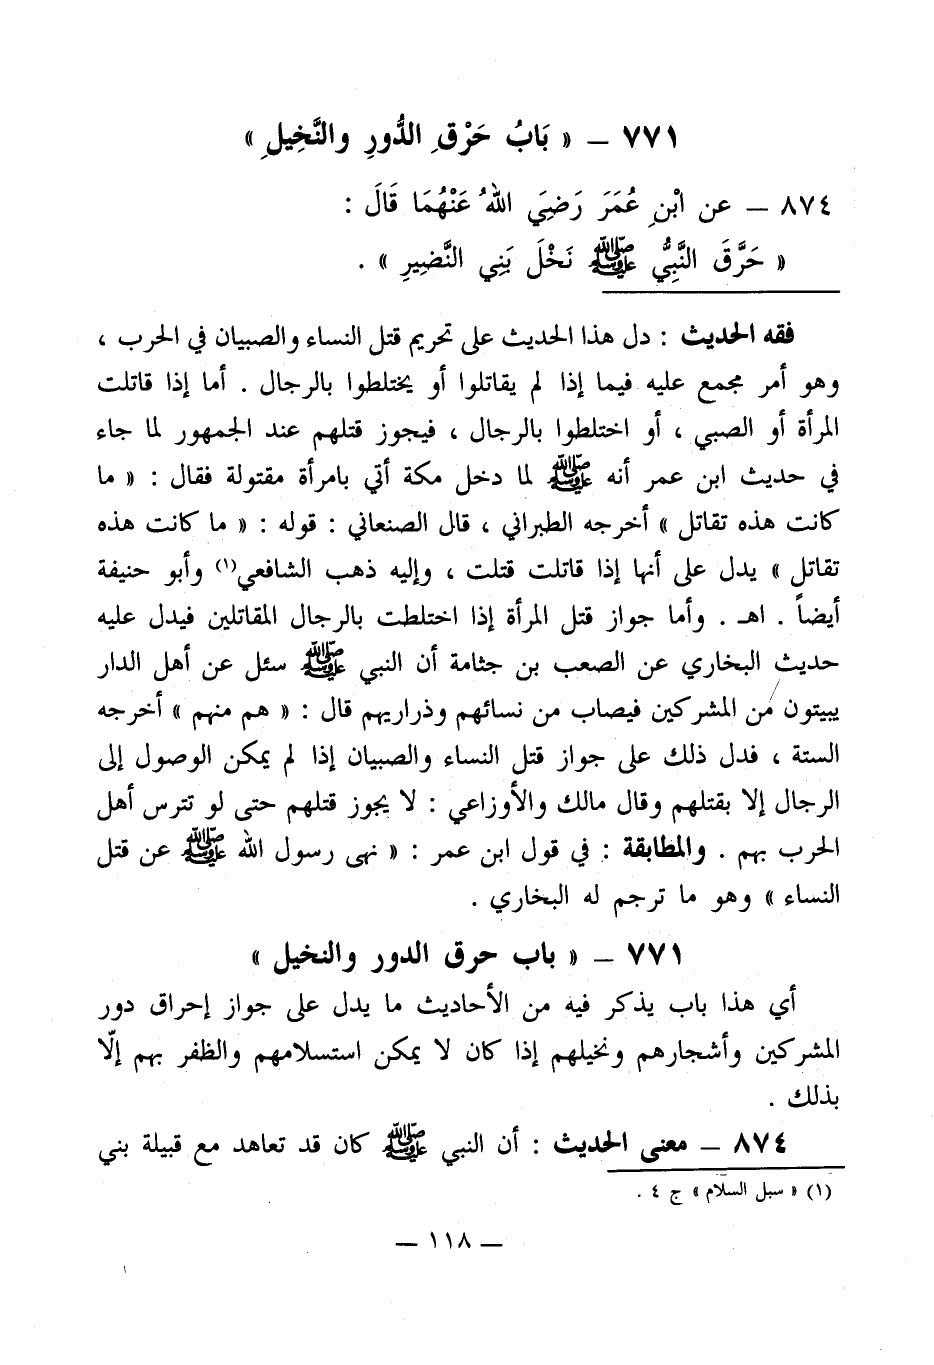 ٧٧١ – « بَابُ حَرْقِ الدُّورِ والنَّخِيلِ »
٨٧٤ – عن ابْنِ عُمَرَ رَضِيَ اللهُ عَنْهُمَا قَالَ :
« حَرَّقَ النَّبِيُّ ﷺ نَخْلَ بَنِي النَّضِيرِ » .
فقه الحديث : دل هذا الحديث على تحريم قتل النساء والصبيان في الحرب ،
وهو أمر مجمع عليه فيما إذا لم يقاتلوا أو يختلطوا بالرجال . أما إذا قاتلت
المرأة أو الصبي ، أو اختلطوا بالرجال ، فيجوز قتلهم عند الجمهور لما جاء
في حديث ابن عمر أنه ﷺ لما دخل مكة أتي بامرأة مقتولة فقال : « ما
كانت هذه تقاتل » أخرجه الطبراني ، قال الصنعاني : قوله : « ما كانت هذه
تقاتل » يدل على أنها إذا قاتلت قتلت ، وإليه ذهب الشافعي(١) وأبو حنيفة
أيضاً . اهـ . وأما جواز قتل المرأة إذا اختلطت بالرجال المقاتلين فيدل عليه
حديث البخاري عن الصعب بن جثامة أن النبي ﷺ سئل عن أهل الدار
يبيتون من المشركين فيصاب من نسائهم وذراريهم قال : « هم منهم » أخرجه
الستة ، فدل ذلك على جواز قتل النساء والصبيان إذا لم يمكن الوصول إلى
الرجال إلا بقتلهم وقال مالك والأوزاعي : لا يجوز قتلهم حتى لو تترس أهل
الحرب بهم . والمطابقة : في قول ابن عمر : « نهى رسول الله ﷺ عن قتل
النساء » وهو ما ترجم له البخاري .
٧٧١ – « باب حرق الدور والنخيل »
أي هذا باب يذكر فيه من الأحاديث ما يدل على جواز إحراق دور
المشركين وأشجارهم ونخيلهم إذا كان لا يمكن استسلامهم والظفر بهم إلّا
بذلك .
٨٧٤ – معنى الحديث : أن النبي ﷺ كان قد تعاهد مع قبيلة بني
(١) « سبل السلام » ج ٤ .
– ١١٨ –